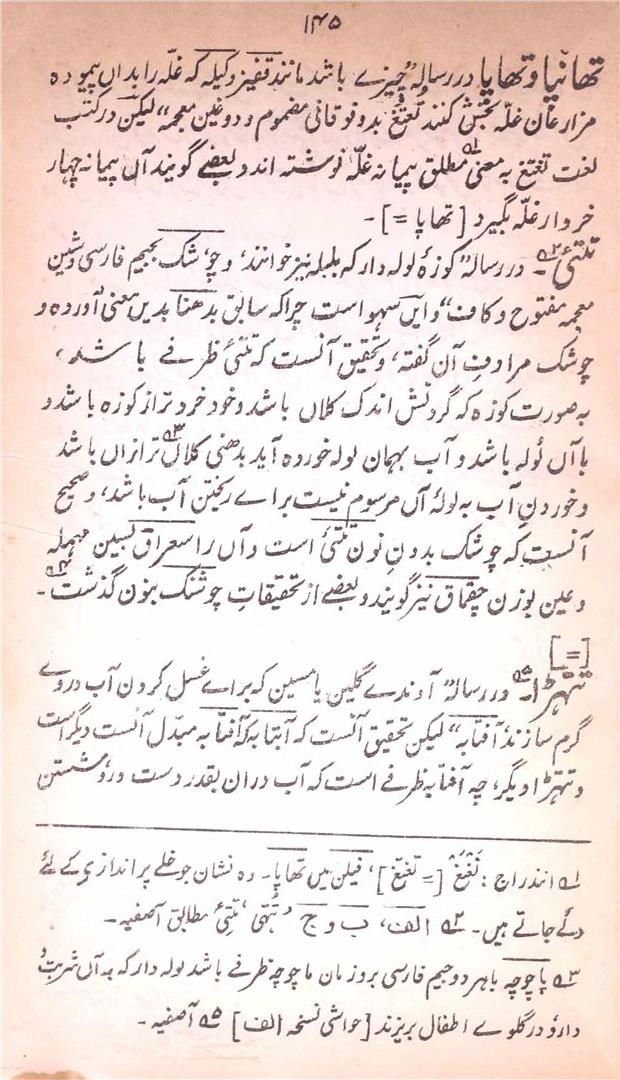 ۱۴۵
تھانیا وتھاپا در رسالہ "چیزے باشد مانند قفیز وکیلہ کہ غلّہ را بداں پیمودہ
مزارعان غلّہ بخش کنند تغتغ بدو فوقانی مضموم و دو غین معجمہ" لیکن در کتب
لغت تغتغ بہ معنیٔ مطلق پیمانہ غلّہ نوشتہ اند و بعضے گویند آں پیمانہ چہار
خروار غلّہ بگیرد [تھاپا =] ۔
تتنیٔ ۔ در رسالہ "کوزۂ لولہ دار کہ بلبلہ نیز خوانند، و چوشک بجیم فارسی وشین
معجمہ مفتوح و کاف" و ایں سہو است چراکہ سابق بدھنا بدیں معنی آوردہ و
چوشک مرادف آن گفتہ، و تحقیق آنست کہ تتنیٔ ظرفے باشد،
بہ صورت کوزہ کہ گردنش اندک کلاں باشد و خود خرد تر از کوزہ باشد و
باآں لُولہ باشد و آب بہمان لولہ خوردہ آید بدھنی کلاں تر ازاں باشد
و خوردنِ آب بہ لولۂ آں مرسوم نیست براے ریختن آب باشد، و صحیح
آنست کہ چوشک بدونِ نون تتنیٔ است و آں را سعراق بسین مہملہ
و عین بوزن چقماق نیز گویند و بعضے از تحقیقاتِ چوشنگ بنون گذشت ۔
[=]
تتہڑا ۔ در رسالہ "آوندے گلین یا مسین کہ براے غسل کردن آب درو
گرم سازند آفتابہ" لیکن تحقیق آنست کہ آبتابہ کہ آفتابہ مبدّل آنست دیگر است
و تتہڑا دیگر، چہ آفتابہ ظرفے است کہ آب دران بقدر دست و رو شستن
۱ اندراج : تغتغ [= تغتغ]، فیلن میں تھاپا ۔ وہ نشان جو غلے پر اندازی کے لئے
دئے جاتے ہیں ۔ ۲ الف، ب و ج تتنی مطابق آصفیہ ۔
۳ پاچوچہ باہر دو جیم فارسی بروزمان ماچوچہ ظرفے باشد لولہ دار کہ بہ آں شربت و
دارو در گلوے اطفال بریزند [حواشی نسخہ الف] ۵ آصفیہ ۔